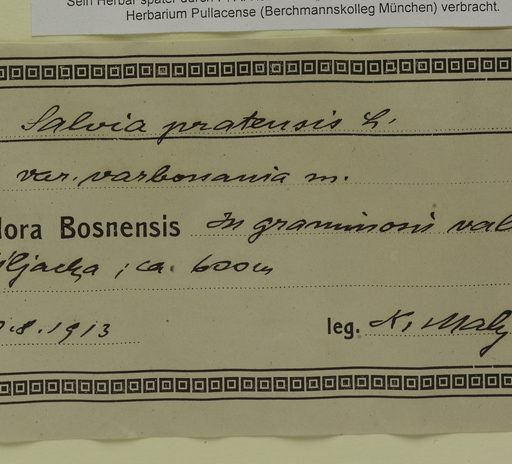 Sein Herbar später durch
Herbarium Pullacense (Berchmannskolleg München) verbracht.
Salvia pratensis L.
var. varbonania m.
lora Bosnensis In graminosis val
iljacka ; ca. 600m
.8.1913
leg. K. Maly